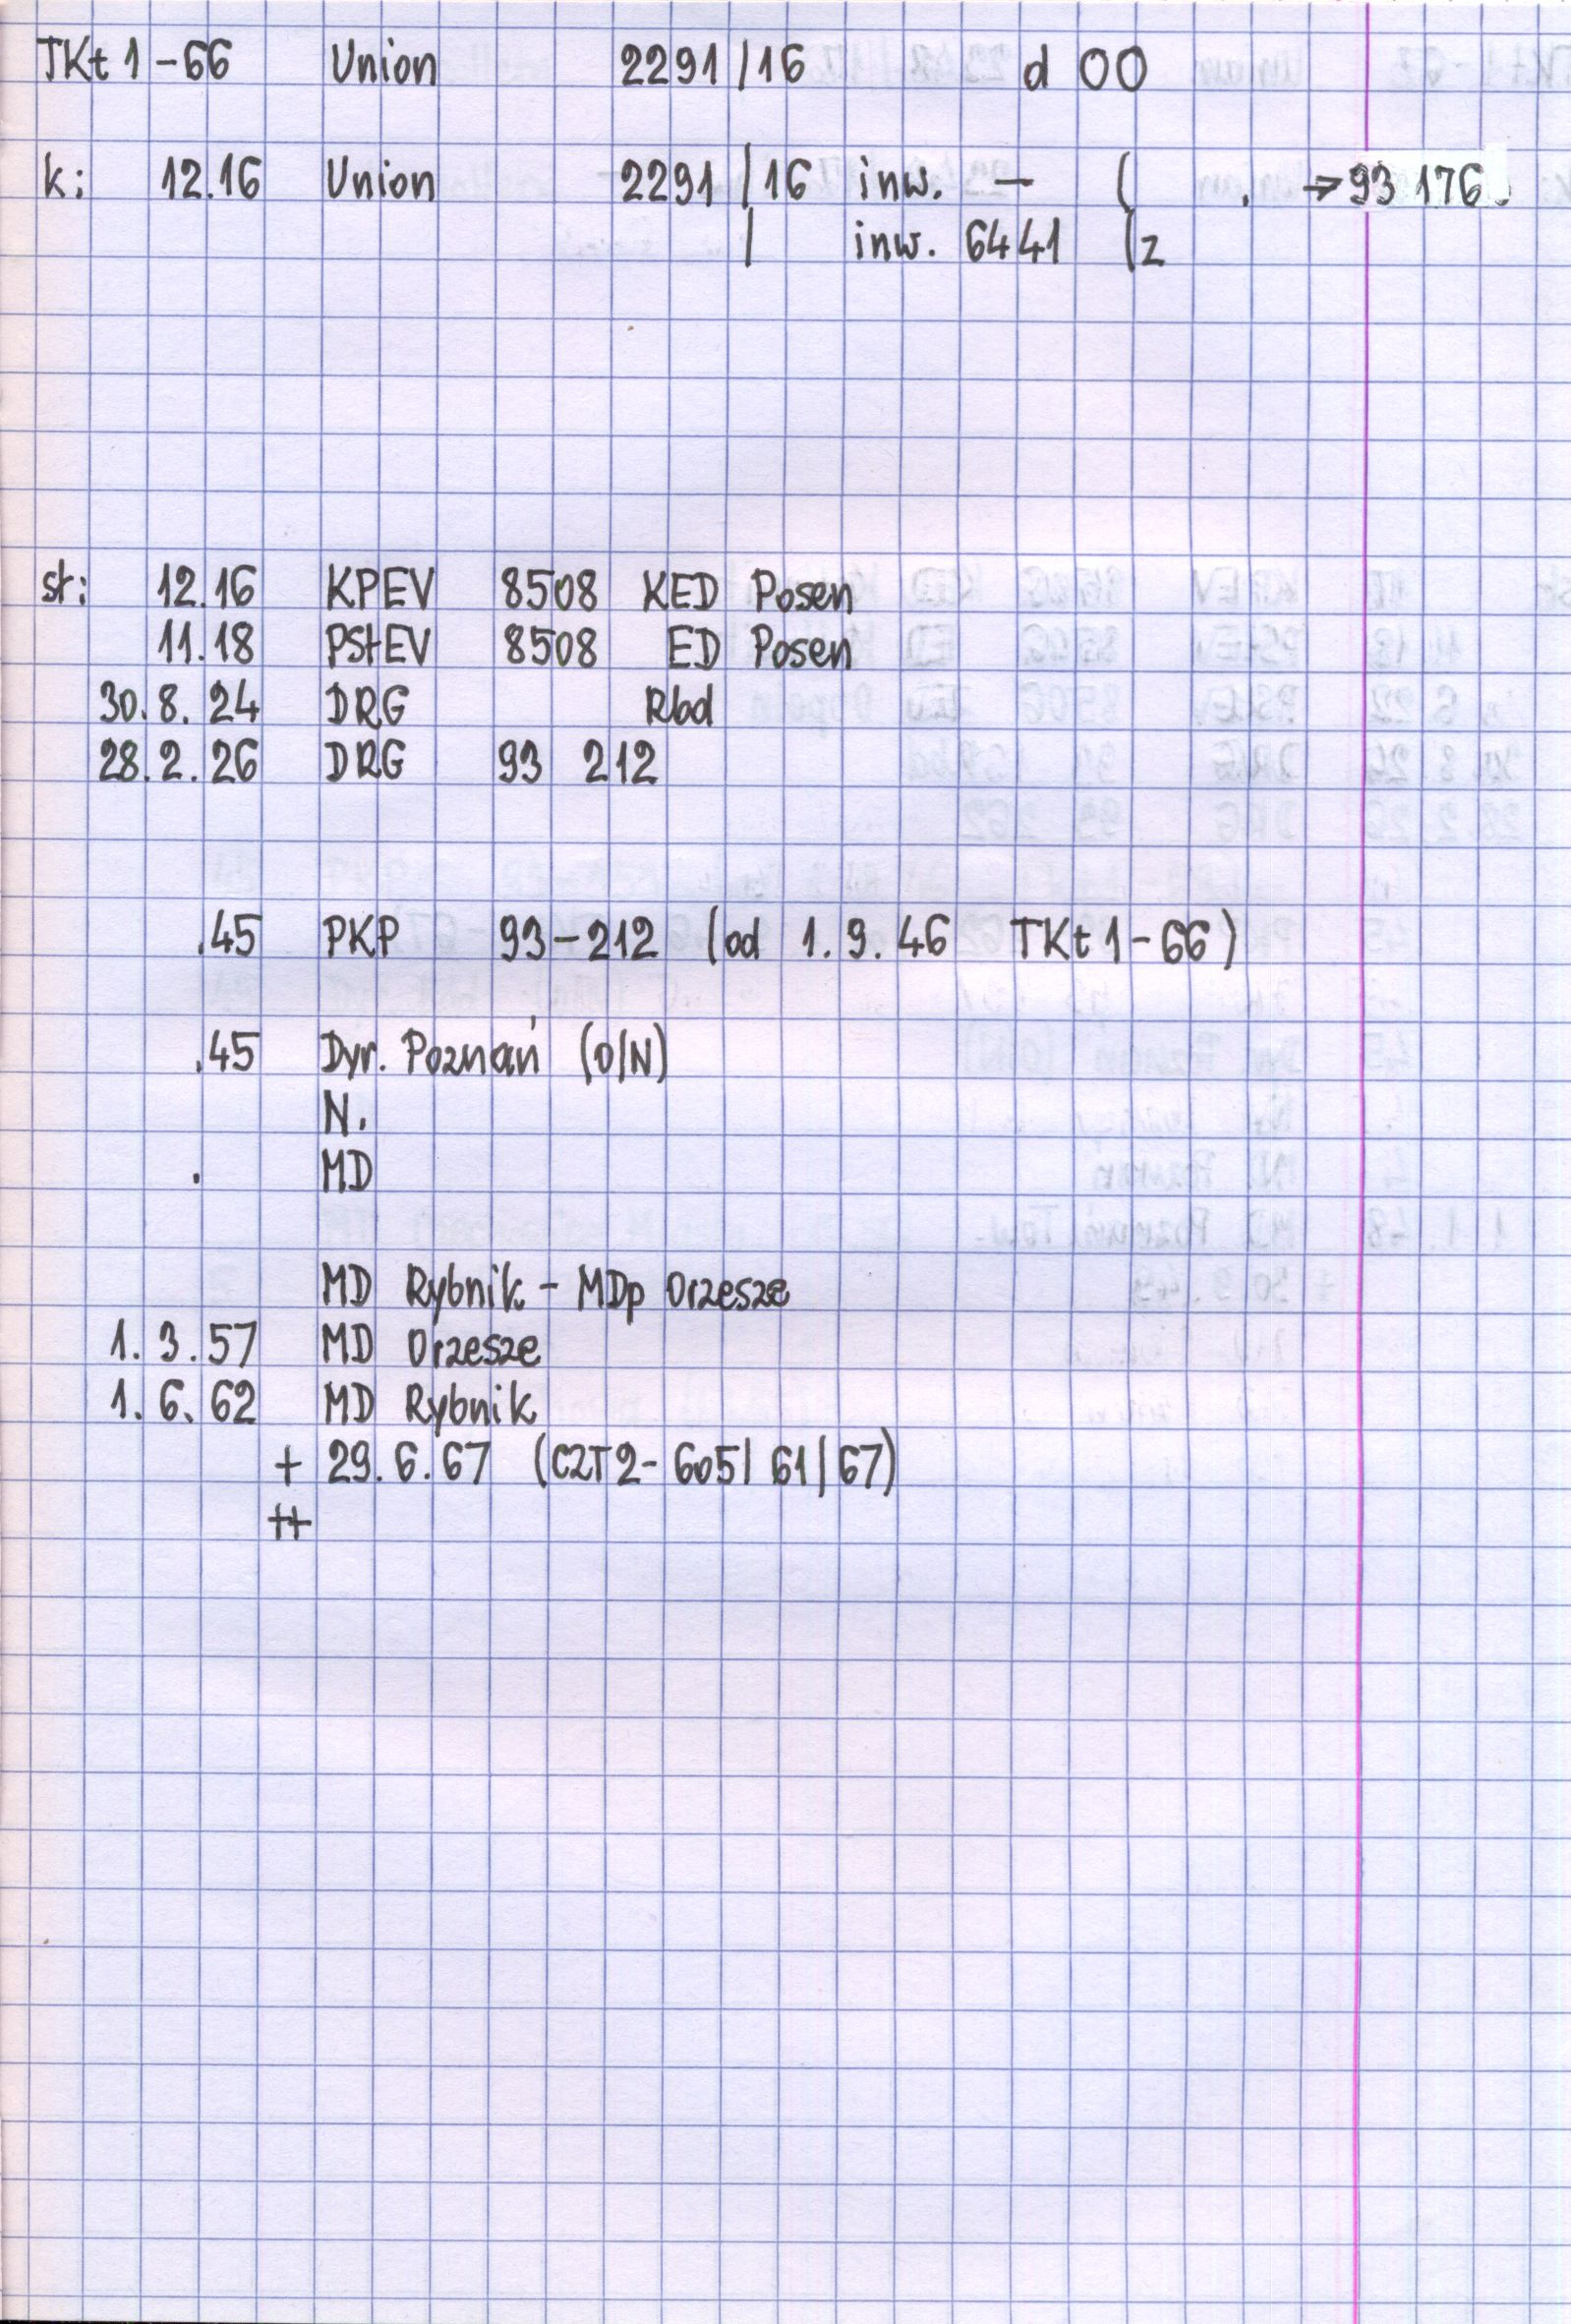 TKt 1-66 Union 2291/16 d OO
k: 12.16 Union 2291/16 inw. — ( . → 93 176
| inw. 6441 (z
st: 12.16 KPEV 8508 KED Posen
11.18 PStEV 8508 ED Posen
30.8.24 DRG Rbd
28.2.26 DRG 93 212
.45 PKP 93-212 (od 1.9.46 TKt 1-66)
.45 Dyr. Poznań (O/N)
N.
. MD
MD Rybnik - MDp Orzesze
1.3.57 MD Orzesze
1.6.62 MD Rybnik
+ 29.6.67 (CZT2-605/61/67)
++